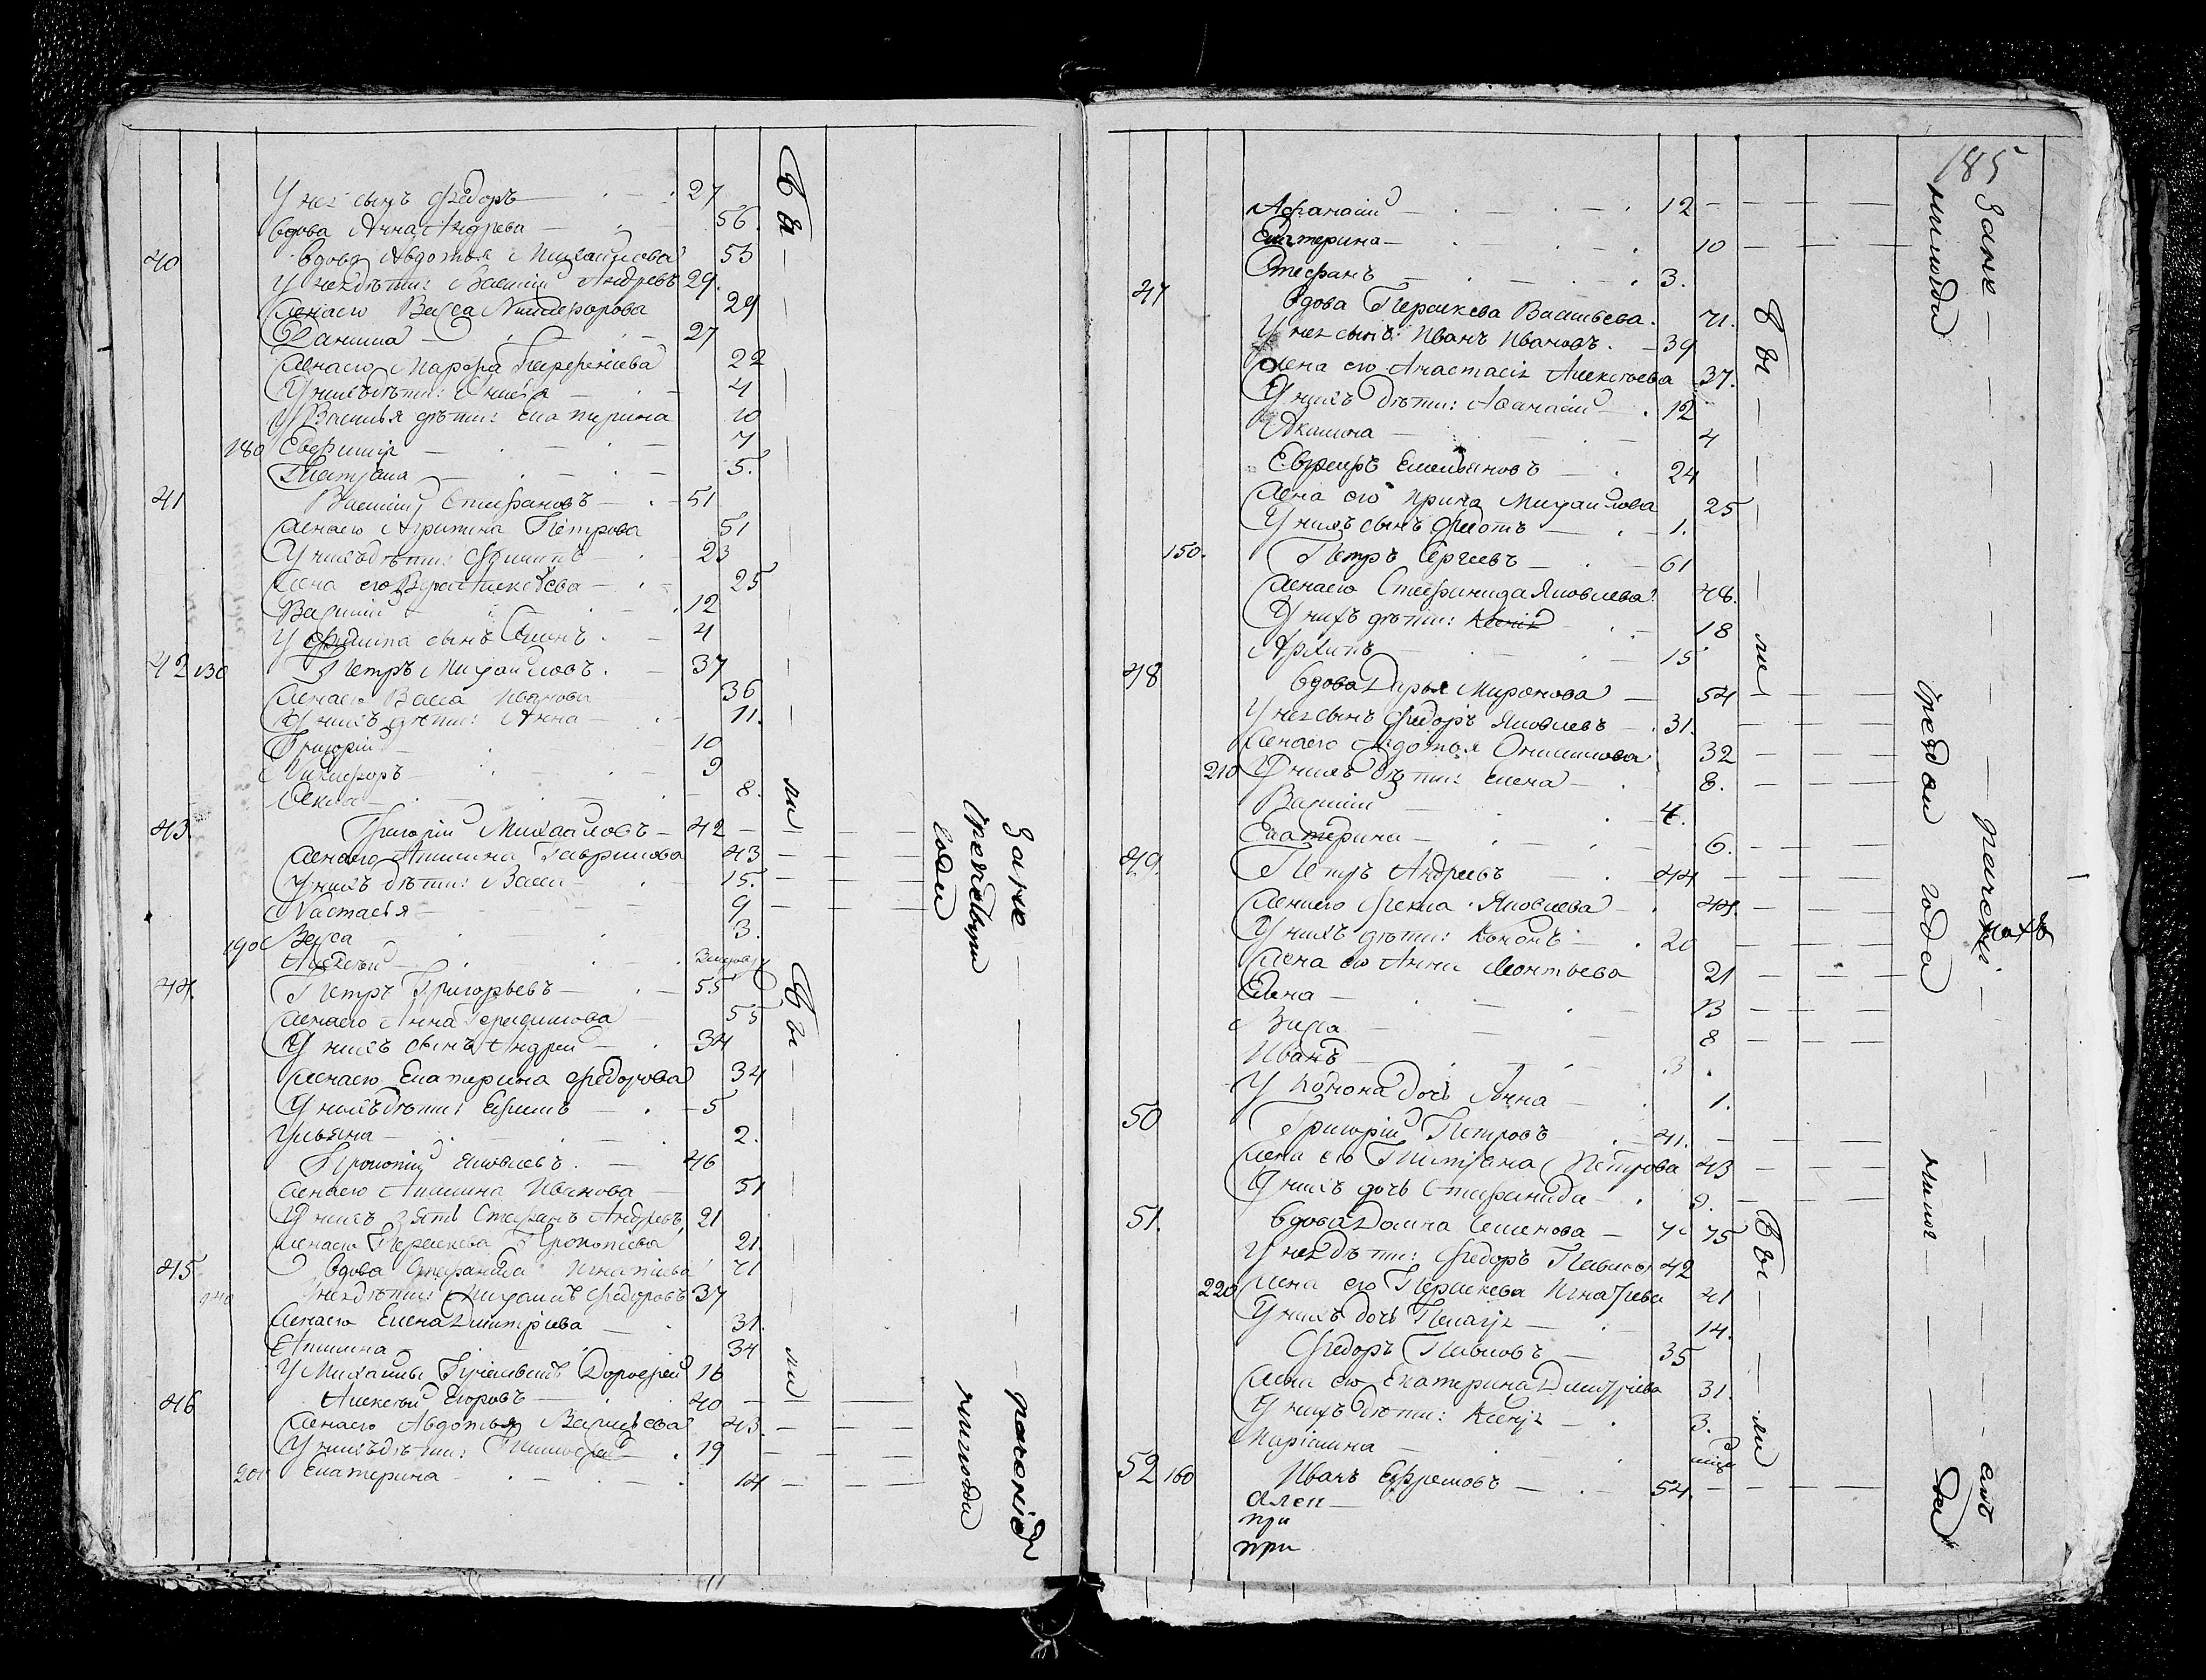 У нея сынъ Федоръ 27
вдова Анна Андрева 56.
40 вдова Авдотья Михайлова 53
У нея дѣти: Василий Андревъ 29.
Жена его Васса Никифорова 29
Данила 27
Жена его Марфа Перфеніева 22
У нихъ дѣти: 4
У Василья дѣти: Екатерина 10
180 Евфимія 7
Татіана 5.
41 Василий Стефановъ 51
Жена его Агрипина Петрова 51
У нихъ дѣти: Филипъ 23
Жена его Вера Алексѣева 25
Василий 12
У Филипа сынъ 4
42 130 Петръ Михайловъ. 37
Жена его Васса Иванова 36
У нихъ дѣти: Анна 11.
Григорій 10
Никифоръ 9
Фекла 8.
43. Григорий Михайловъ 42
Жена его Акилина Гаврилова 43
У нихъ дѣти: Васса 15.
Настасья 9
190 Васса 3.
Алексѣй
44. Петръ Григорьевъ 55
Жена его Анна Герасимова 55
У нихъ сынъ Андрей 34
Жена его Екатерина Федорова 34
У нихъ дѣти: Ефимъ 5
Ульяна 2.
Прокопий Яковлевъ. 46
Жена его Акилина Иванова 51
У нихъ зять Стефанъ Андревъ 21
Жена его Параскева Прокопіева 21.
45 вдова Стефанида Игнатіева 71
140 У нея дѣти: Михаилъ Федоровъ 37
Жена его Елена Димитріева 31.
Акилина 34
У Михаилы Дорофей 16
46 Алексѣй Егоровъ 40
Жена его Авдотья Васильева 43.
У нихъ дѣти: Тимофей 19
200 Екатерина 14
Бы
ли
Бы
ли
За не
185
Афанасий 12
Екатерина 10
Стефанъ 3.
47 вдова Пераскева Васильева. 71.
У нея сынъ: Иванъ Ивановъ. 39
Жена его Анастасія Алексѣева 37.
У нихъ дѣти: Афанасий 12
Акилина 4
Ефремъ Емельяновъ 24
Жена его Ирина Михайлова 25
У нихъ сынъ Федотъ 1.
150. Петръ Сергеевъ 61
Жена его Стефанида Яковлева 48.
У нихъ дѣти: Ксенія 18
Архипъ 15
48 вдова Дарья Миронова 54
У нея сынъ Федоръ Яковлевъ 31.
Жена его Авдотья Онисимова 32
210 У нихъ дѣти: Елена 8.
Василий 4.
Екатерина 6.
49. Петръ Андреевъ 44
Жена его Фекла Яковлева
У нихъ дѣти: Кононъ 20
Жена его Анна Леонтьева 21
Елена 13
Васса 8
Иванъ 3.
У Конона дочь Анна 1.
50 Григорій Петровъ 41.
Жена его Татіана Петрова 43
У нихъ дочь Стефанида 9.
51. вдова Домна Семенова 75
У нея дѣти: Федоръ Павловъ 42
220 Жена его Пераскева Игнатіева 41
У нихъ дочь Пелагія 14.
Федоръ Павловъ 35
Жена его Екатерина Димитріева 31.
У нихъ дѣти: Ксенія 3.
Маріамна
52 160 Иванъ Ефремовъ 54.
при
при
Бы
ли
Бы
ли
За не
года